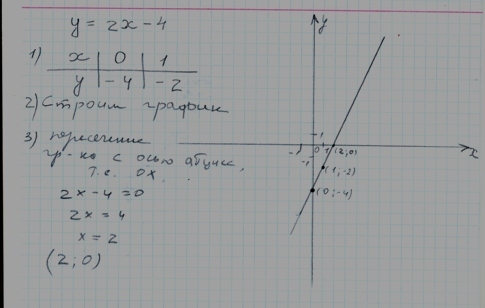 y = 2x - 4
1) x | 0 | 1
y | -4 | -2
2) Строим график
3) пересечение
гр-ка с осью абцисс,
т.е. OX.
2x - 4 = 0
2x = 4
x = 2
(2; 0)
y
1
-1 0 1 (2; 0) x
-1
(1; -2)
(0; -4)